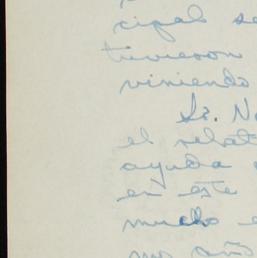 cipal se
tuvieron
viniendo
Sr. No
el relat
ayuda
en este
mucho e
mo año